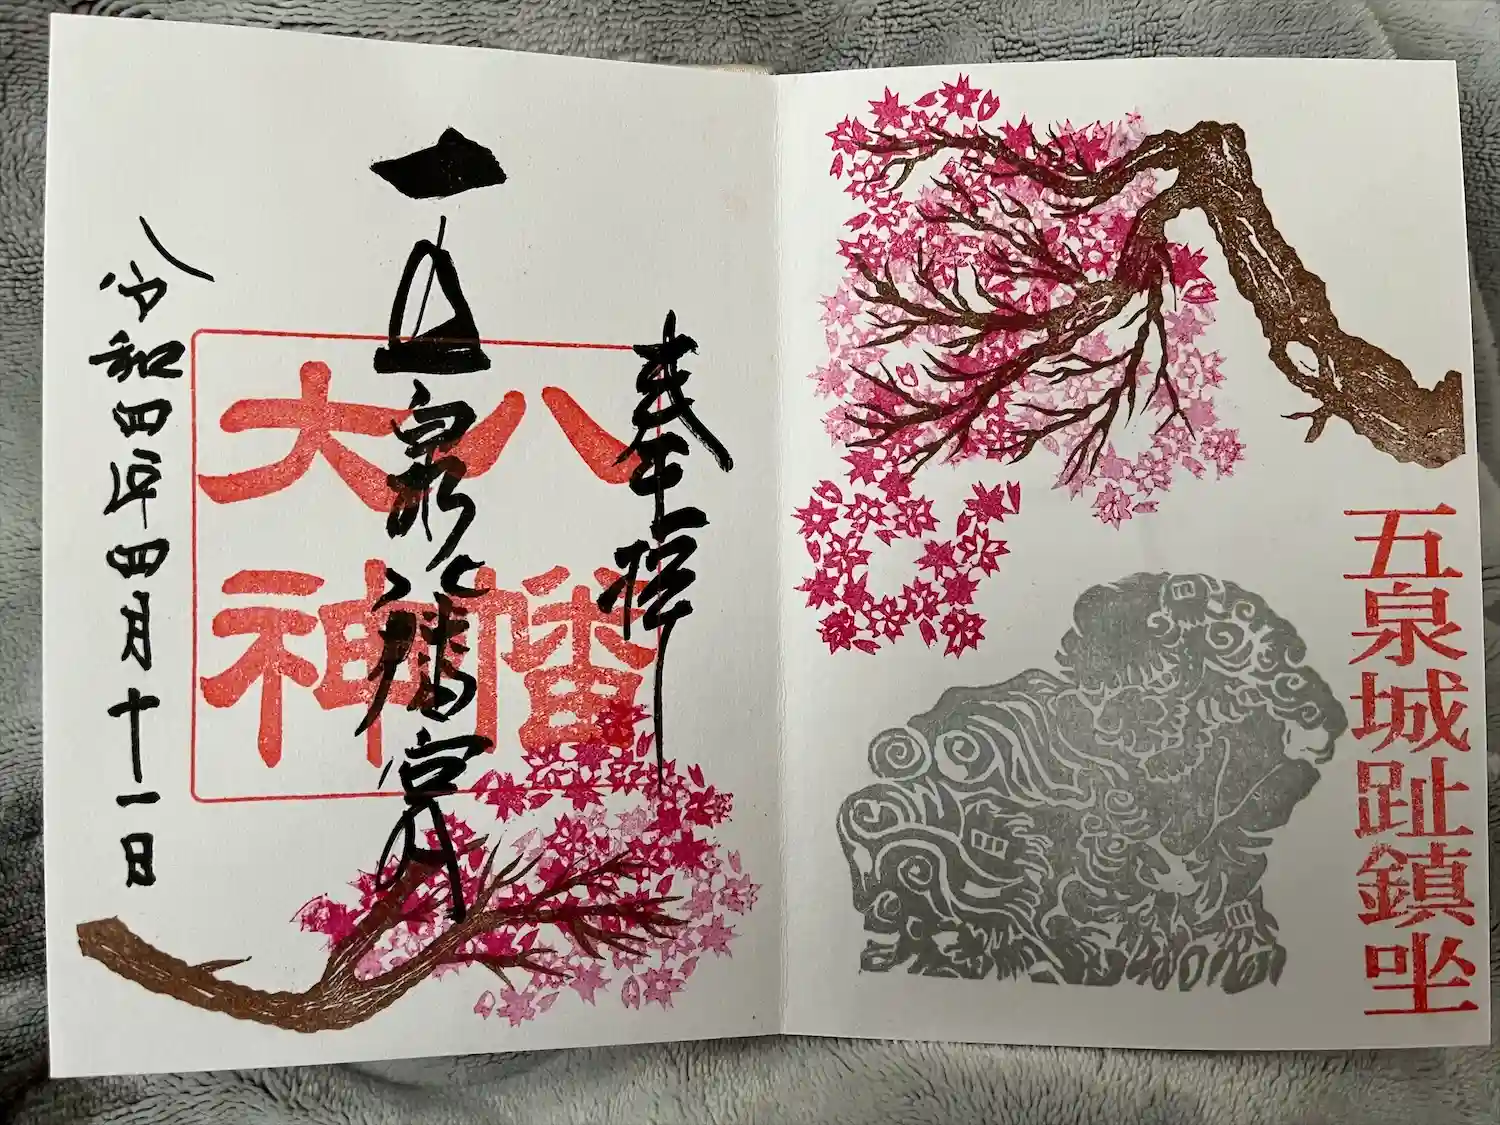 五泉城趾鎮坐
奉拝
八幡大神
五泉八幡宮
令和四年四月十一日